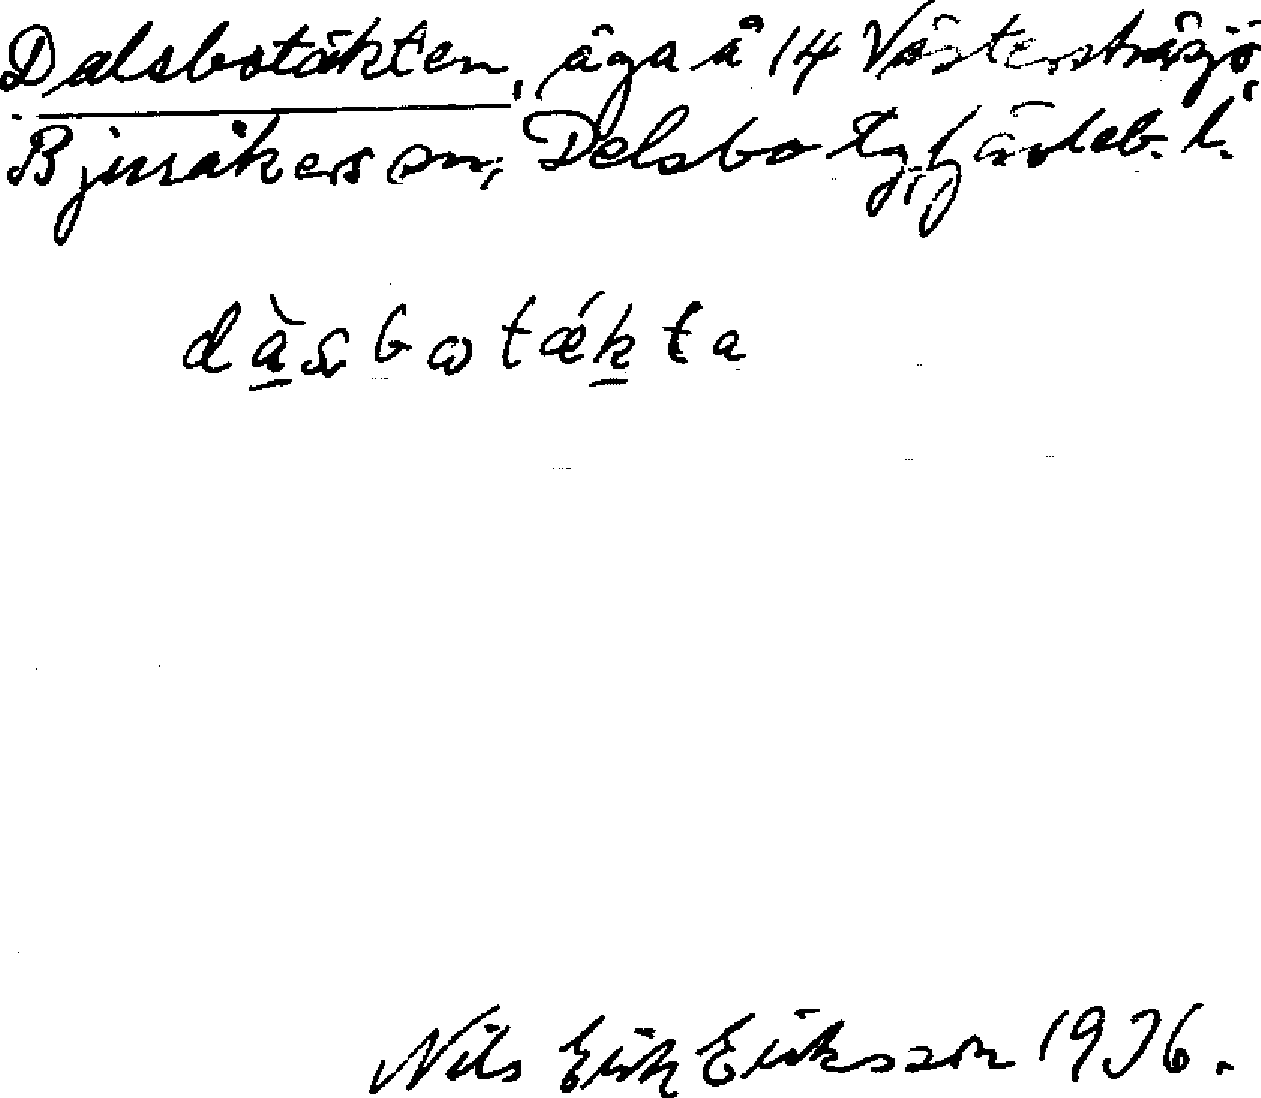 Dalsbotäkten, äga å 14 Västerstråsjö,
Bjuråkers sn, Delsbo tg, Gävleb. l.
dàsbωtǽkta
Nils Erik Eriksson 1936.